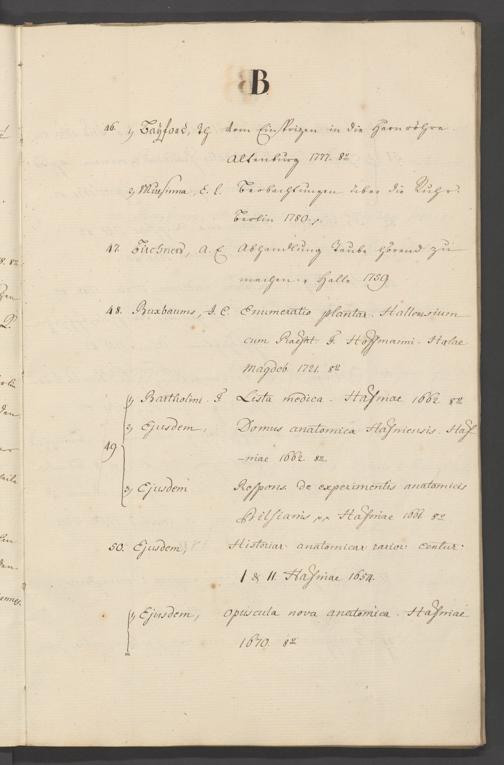 B
46. 1) Bayford, Th. vom Einspritzen in die Harnröhre.
Altenburg 1777. 8°
2) Mursinna, C. L. Beobachtungen über die Ruhr.
Berlin 1780.
47. Büchners, A. E. Abhandlung Taube hörend zu
machen. Halle 1759
48. Buxbaums, J. C. Enumeratio plantar. Hallensium
cum Praefat. F. Hoffmanni. Halae
Magdeb. 1721. 8°
49
1) Bartholini. T. Cista medica. Hafniae 1662 8°
2) Ejusdem, Domus anatomica Hafniensis. Haf
-niae 1662. 8°
3) Ejusdem Respons. de experimentis anatomicis
Bilsianis Hafniae 1661 8°
50. Ejusdem, Historiar. anatomicar. rarior. centur:
I & II. Hafniae 1654.
1) Ejusdem, opuscula nova anatomica. Hafniae
1670. 8°